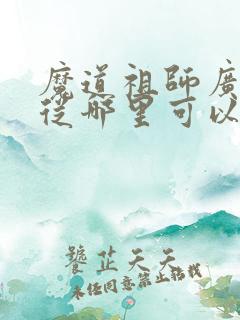 魔道祖師廣
從哪里可以
饕芷天天
未经同意禁止转载